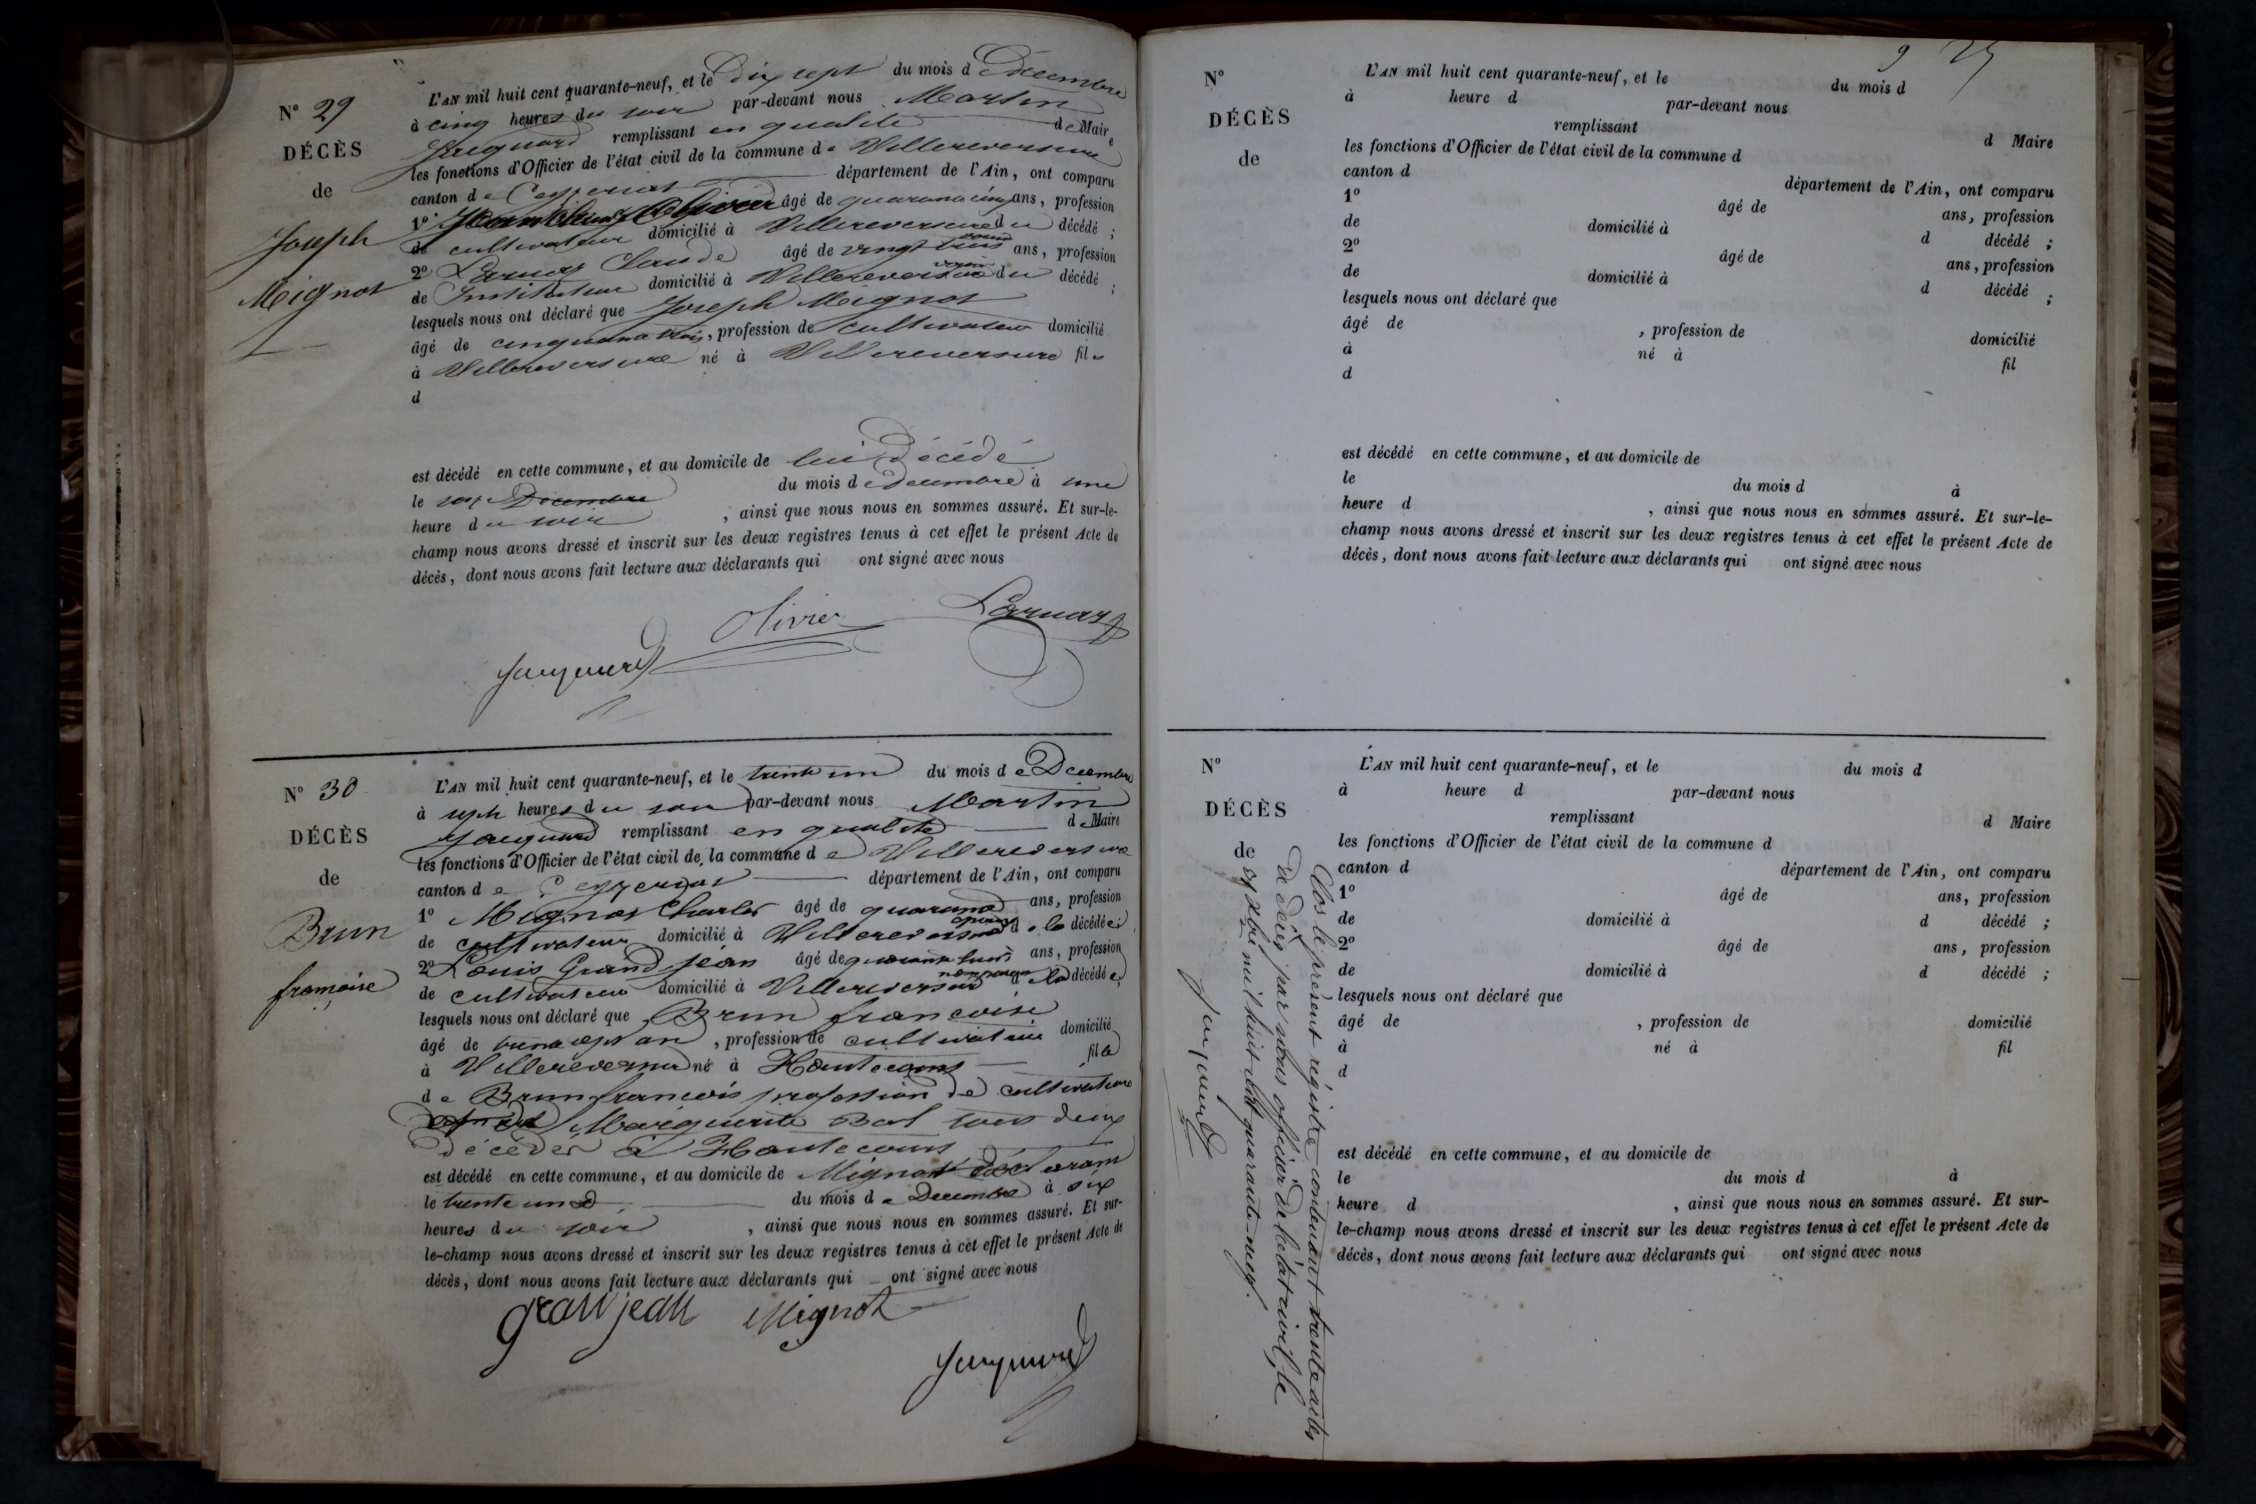 N° 29
DÉCÈS
de
Joseph
Mignot
L'AN mil huit cent quarante-neuf, et le dix sept du mois d e Décembre
à cinq heures du soir par-devant nous Martin
Jacquard remplissant en qualité de Maire
les fonctions d'Officier de l'état civil de la commune de Villereversure
canton de Ceyzeriat département de l'Ain, ont comparu
1° Olivier âgé de quarante cinq ans, profession
de cultivateur domicilié à Villereversure du décédé ;
2° Larnay Claude âgé de vingt ans, profession
de Instituteur domicilié à Villereversure voisin du décédé ;
lesquels nous ont déclaré que Joseph Mignot
âgé de cinquante trois, profession de cultivateur domicilié
à Villereversure né à Villereversure fils
d
est décédé en cette commune, et au domicile de lui Décédé
le Décembre du mois de Decembre à une
heure du soir , ainsi que nous nous en sommes assuré. Et sur-le-
champ nous avons dressé et inscrit sur les deux registres tenus à cet effet le présent Acte de
décès, dont nous avons fait lecture aux déclarants qui ont signé avec nous
Olivier Larnay
Jacquard
N° 30
DÉCÈS
de
Brun
françoise
L'AN mil huit cent quarante-neuf, et le trente un du mois de Décembre
à sept heures du soir par-devant nous Martin
Jacquard remplissant en qualité de Maire
les fonctions d'Officier de l'état civil de la commune de Villereversure
canton de Ceyzeriat département de l'Ain, ont comparu
1° Mignot Charles âgé de quarante ans, profession
de cultivateur domicilié à Villereversure époux de la décédée ;
2° Louis Grand jean âgé de quarante ans, profession
de cultivateur domicilié à Villereversure de la décédée ;
lesquels nous ont déclaré que Brun francoise
âgé de trente sept an , profession de cultivatrice domicilié
à Villereversure né à Hautecourt fille
de Brun francois profession de cultivateur
Marguerite Bal tous deux
décédés à Hautecourt
est décédé en cette commune, et au domicile de Mignot déclarant
le trente un du mois de Decembre à six
heures du soir , ainsi que nous nous en sommes assuré. Et sur-
le-champ nous avons dressé et inscrit sur les deux registres tenus à cet effet le présent Acte de
décès, dont nous avons fait lecture aux déclarants qui ont signé avec nous
granjean Mignot
Jacquard
N°
DÉCÈS
de
L'AN mil huit cent quarante-neuf, et le du mois d
à heure d par-devant nous
remplissant d Maire
les fonctions d'Officier de l'état civil de la commune d
canton d département de l'Ain, ont comparu
1° âgé de ans, profession
de domicilié à d décédé ;
2° âgé de ans, profession
de domicilié à d décédé ;
lesquels nous ont déclaré que
âgé de , profession de domicilié
à né à fil
d
est décédé en cette commune, et au domicile de
le du mois d à
heure d , ainsi que nous nous en sommes assuré. Et sur-le-
champ nous avons dressé et inscrit sur les deux registres tenus à cet effet le présent Acte de
décès, dont nous avons fait lecture aux déclarants qui ont signé avec nous
N°
DÉCÈS
de
L'AN mil huit cent quarante-neuf, et le du mois d
à heure d par-devant nous
remplissant d Maire
les fonctions d'Officier de l'état civil de la commune d
canton d département de l'Ain, ont comparu
1° âgé de ans, profession
de domicilié à d décédé ;
2° âgé de ans, profession
de domicilié à d décédé ;
lesquels nous ont déclaré que
âgé de , profession de domicilié
à né à fil
d
est décédé en cette commune, et au domicile de
le du mois d à
heure d , ainsi que nous nous en sommes assuré. Et sur-
le-champ nous avons dressé et inscrit sur les deux registres tenus à cet effet le présent Acte de
décès, dont nous avons fait lecture aux déclarants qui ont signé avec nous
Clos le présent régistre contenant trente actes
de décès par nous officier de l'état civil, le
31 xbre mil huit cent quarante-neuf.
Jacquard